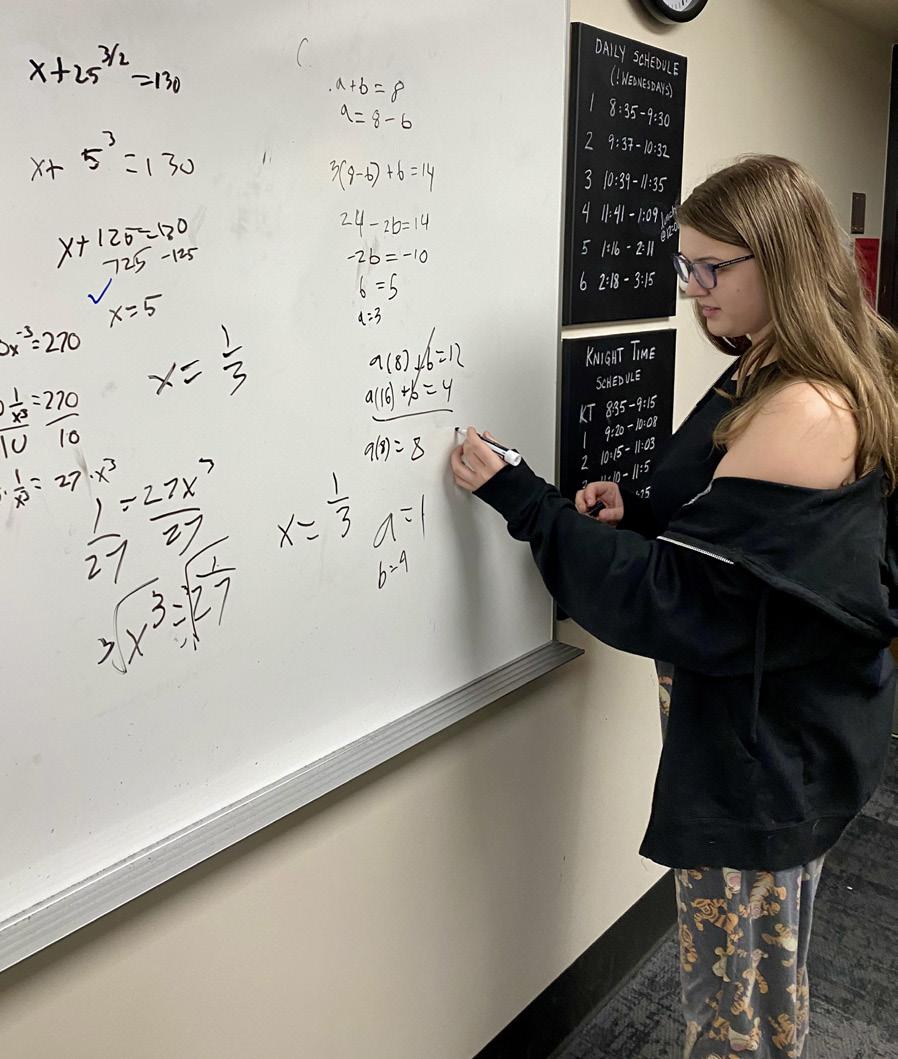 x+25^3/2=130
x+ 5^3=130
x+125=130
-125 -125
x=5
x^-3=270
1/x^3=270
10 10
1/x^3=27·x^3
1/27=27x^3/27
∛x^3=∛1/27
x=1/3
x=1/3
a+b=8
a=8-b
3(8-b)+b=14
24-2b=14
-2b=-10
b=5
a=3
a(8)+b=12
a(16)+b=4
a(8)=8
a=1
b=4
DAILY SCHEDULE
(!WEDNESDAYS)
1 8:35-9:30
2 9:37-10:32
3 10:39-11:35
4 11:41-1:09
5 1:16-2:11
6 2:18-3:15
KNIGHT TIME
SCHEDULE
KT 8:35-9:15
1 9:20-10:08
2 10:15-11:03